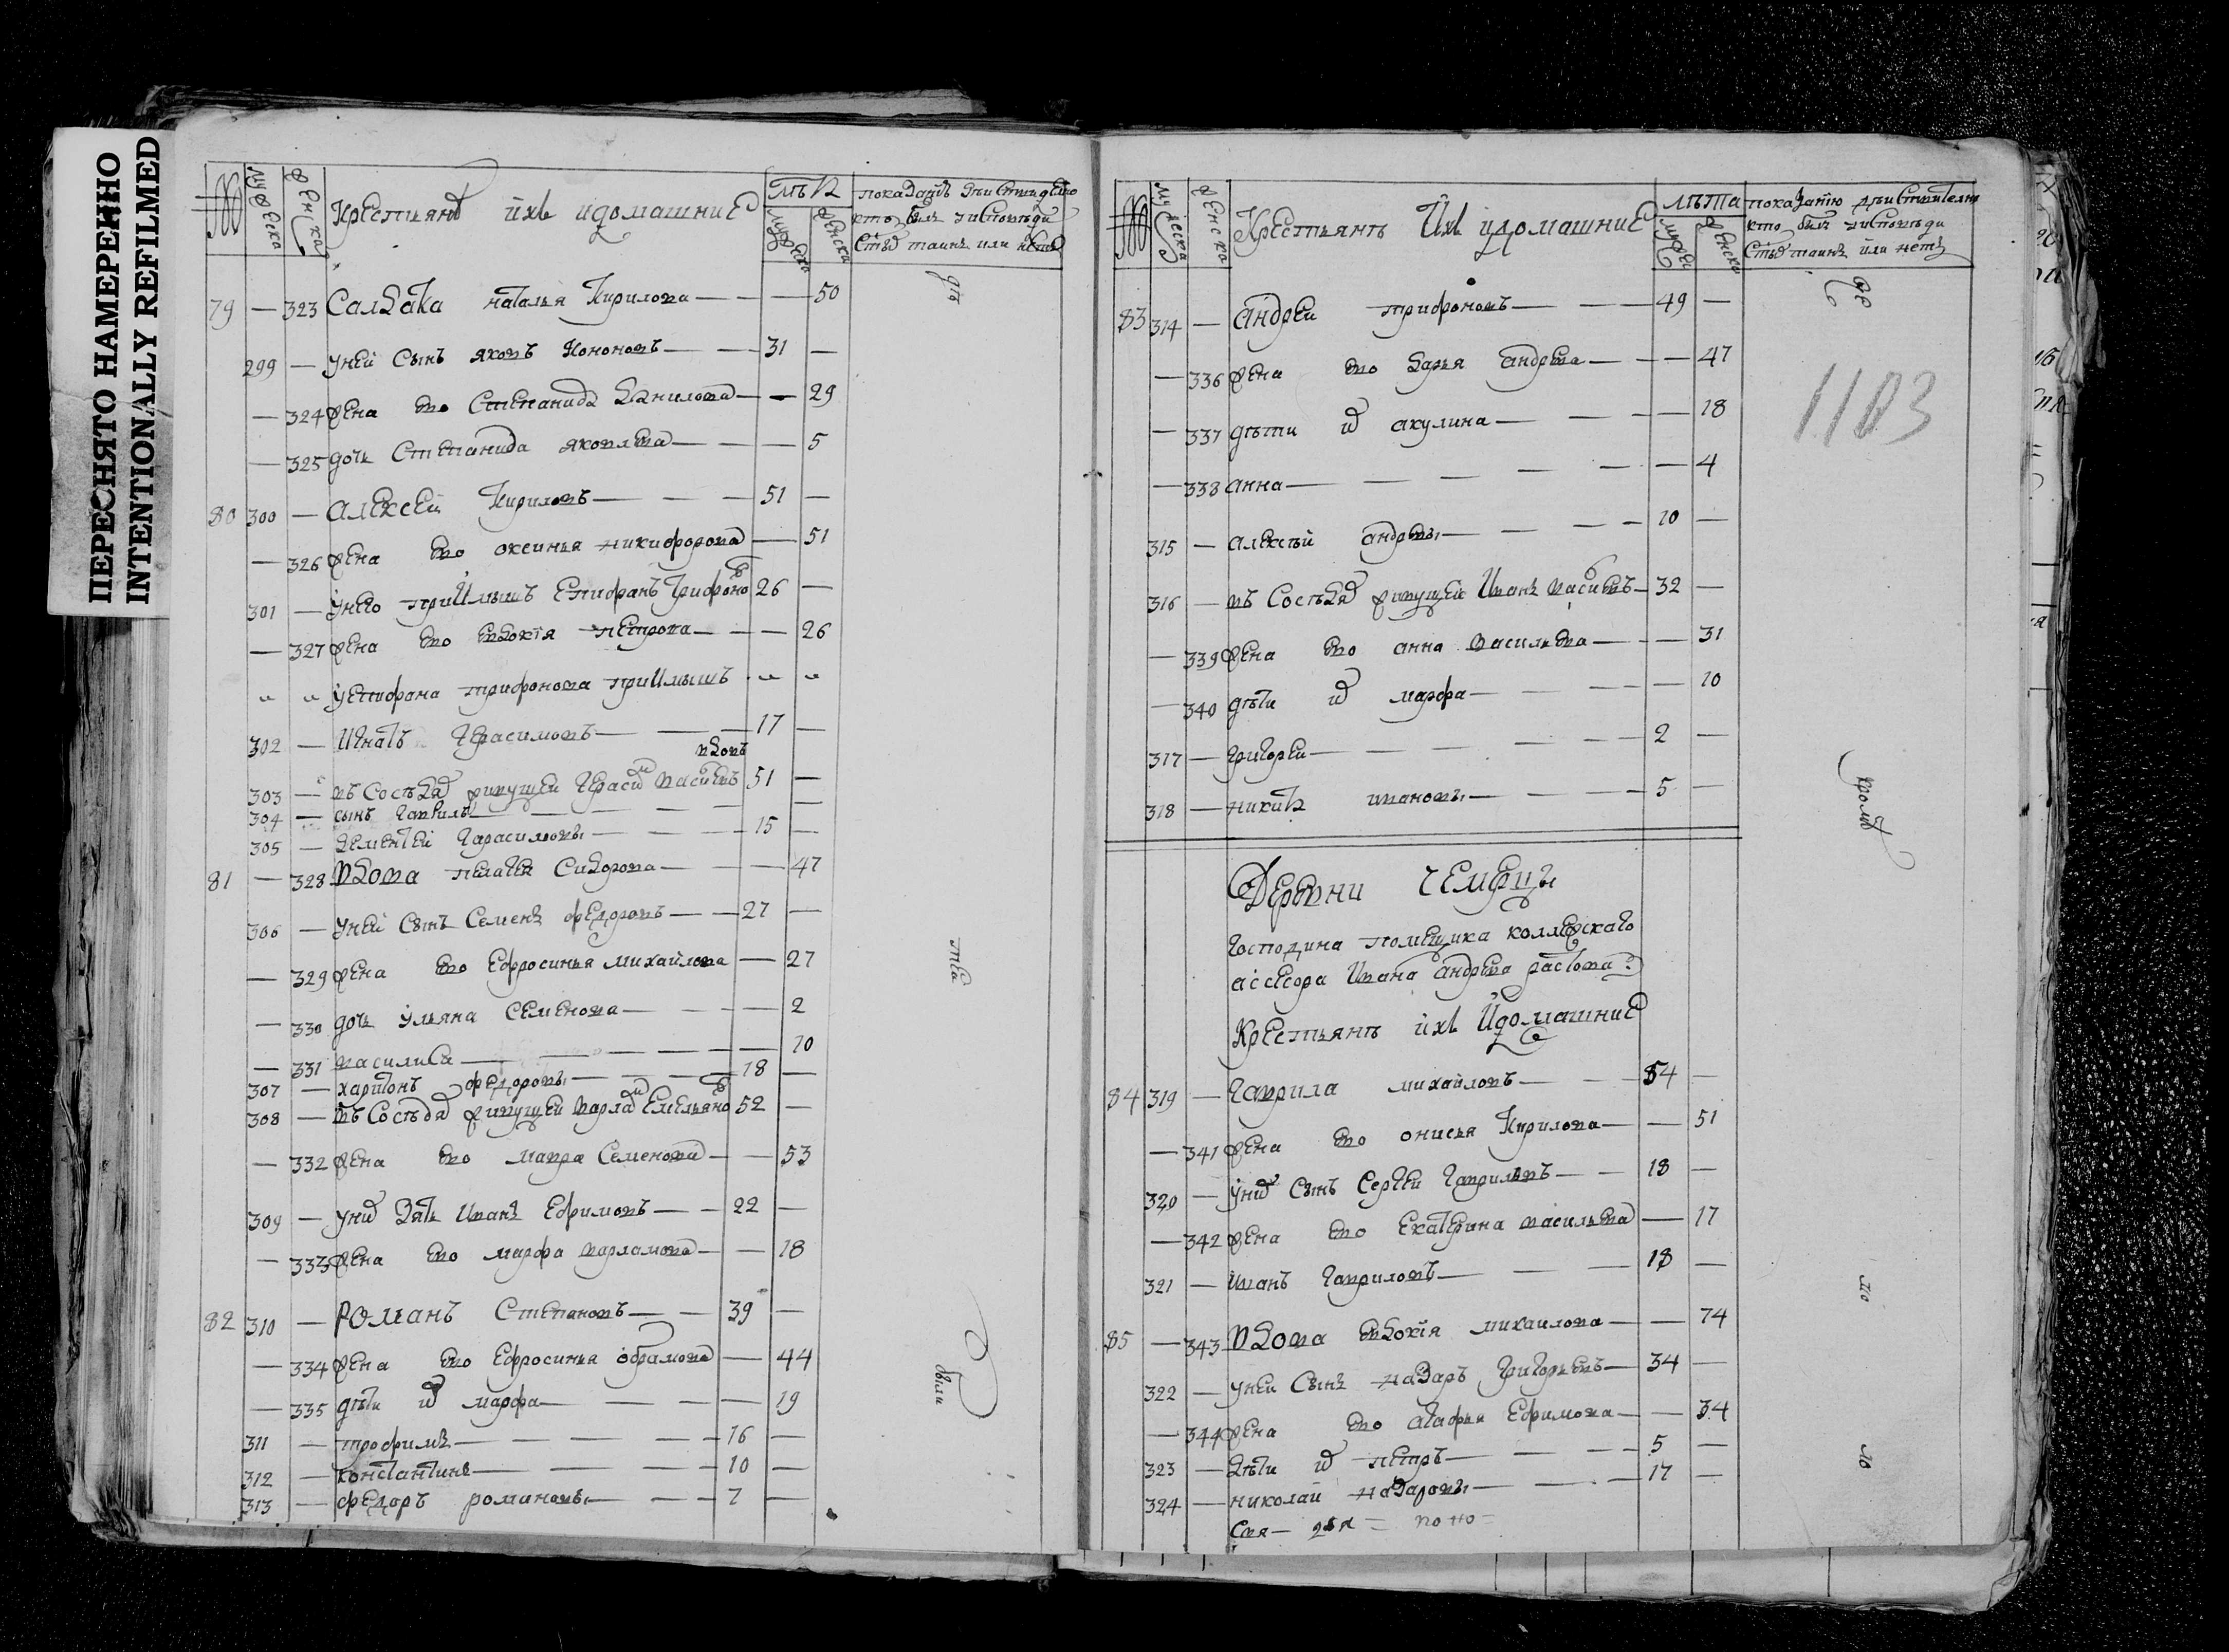 ПЕРЕСНЯТО НАМЕРЕННО
INTENTIONALLY REFILMED
№ мужеска женска Крестьяне ихъ идомашние лѣта мужеска женска показание действително
кто былъ уисповѣди
Стыхъ таинъ или нетъ
79 — 323 Салдатка наталья Кирилова — — — 50
299 — Уней Сынъ яковъ Кононовъ — — 31 —
— 324 жена ево Степанида данилова — — 29
— 325 дочь Степанида яковлева — — — 5
80 300 — алексей Кириловъ — — — 51 —
— 326 жена ево оксинья никифорова — 51
301 — Унего приимышъ Епифанъ Трифоновъ 26 —
— 327 жена ево евдокия петрова — — — 26
" " Уепифана трифонова приимышъ " "
302 — Игнатъ Герасимовъ — — — 17 —
вдовъ
303 — въ Соседяхъ живущей Герасимъ васильевъ 51 —
304 — сынъ Гаврилъ — — — —
305 — дементей Гарасимовы — — — 15 —
81 — 328 Вдова пелагея Сидорова — — — 47
306 — Уней Сынъ Семенъ федоровъ — — 27 —
— 329 жена ево Ефросинья михайлова — 27
— 330 дочь ульяна Семенова — — — 2
— 331 василиса — — — — — 10
307 — харитонъ федоровы — — — 18 —
308 — въ Соседяхъ живущей варламъ Емельяновъ 52 —
— 332 жена ево мавра Семенова — — 53
309 — Унихъ зять Иванъ Ефимовъ — — 22 —
— 333 жена ево марфа варламова — — 18
82 310 — Романъ Степановъ — — 39 —
— 334 жена ево Ефросинья обрамова — 44
— 335 дѣти ихъ марфа — — — — 19
311 — трофимъ — — — — 16 —
312 — константинъ — — — — 10 —
313 — федоръ романовы — — — 7 —
были
№ мужеска женска Крестьянъ Ихъ идомашние лѣта мужеска женска показанию действителн
кто былъ уисповѣди
Стыхъ таинъ или нетъ
83 314 — андрей трифоновъ — — — 49 —
— 336 жена ево дарья андреева — — — 47
1103
— 337 дѣти ихъ акулина — — — — 18
— 338 анна — — — — — 4
315 — алексѣй андреевы — — — 10 —
316 — въ Соседяхъ живущей Иванъ васильевъ — 32 —
— 339 жена ево анна васильева — — — 31
— 340 дѣти ихъ марфа — — — — 10
317 — григорей — — — — 2 —
318 — никита ивановы — — — 5 —
Деревни
Господина помещика коллежскаго
асесора Ивана андреева
Крестьянъ ихъ Идомашние
84 319 — Гаврила михайловъ — — — 54 —
— 341 жена ево онисья Кирилова — — 51
320 — Унихъ Сынъ Сергей Гавриловъ — — 18 —
— 342 жена ево Екатерина васильева — 17
321 — иванъ Гавриловъ — — — 18 —
85 — 343 Вдова евдокия михаилова — — 74
322 — уней Сынъ назаръ григорьевъ — 34 —
— 344 жена ево агафья Ефимова — — 34
323 — дѣти ихъ петръ — — — 5 —
324 — николай назаровы — — — 17 —